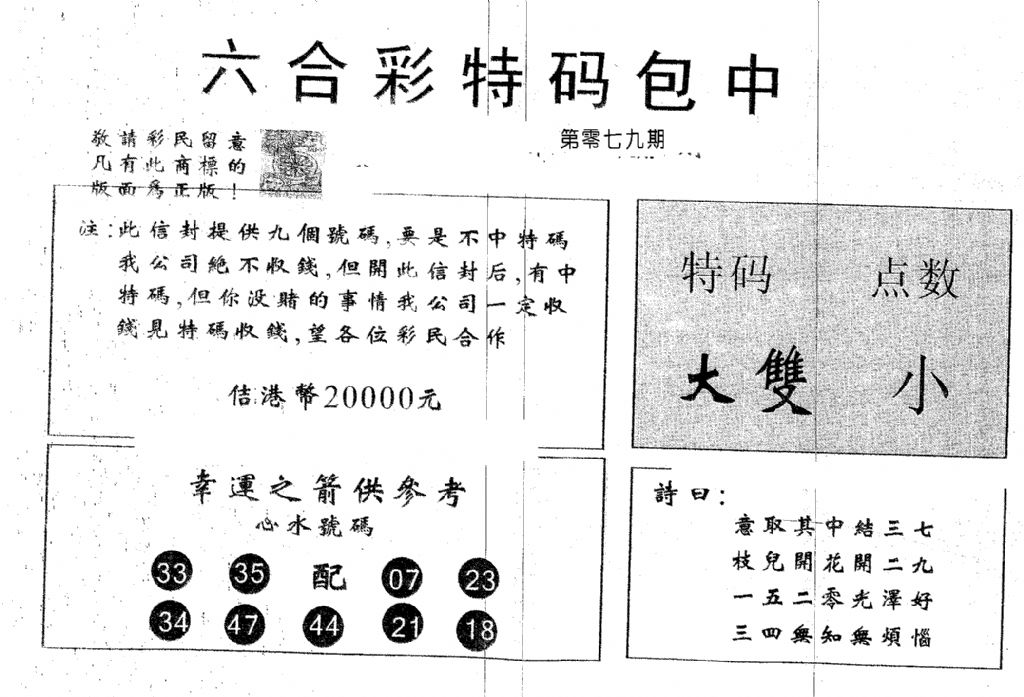 六合彩特码包中
第零七九期
敬請彩民留意
凡有此商標的
版面為正版！
注：此信封提供九個號碼，要是不中特碼
我公司絕不收錢，但開此信封后，有中
特碼，但你没賭的事情我公司一定收
錢見特碼收錢，望各位彩民合作
佶港幣20000元
特码 点数
大雙 小
幸運之箭供參考
心水號碼
33 35 配 07 23
34 47 44 21 18
詩曰：
意取其中結三七
枝兒開花開二九
一五二零光澤好
三四無知無煩惱